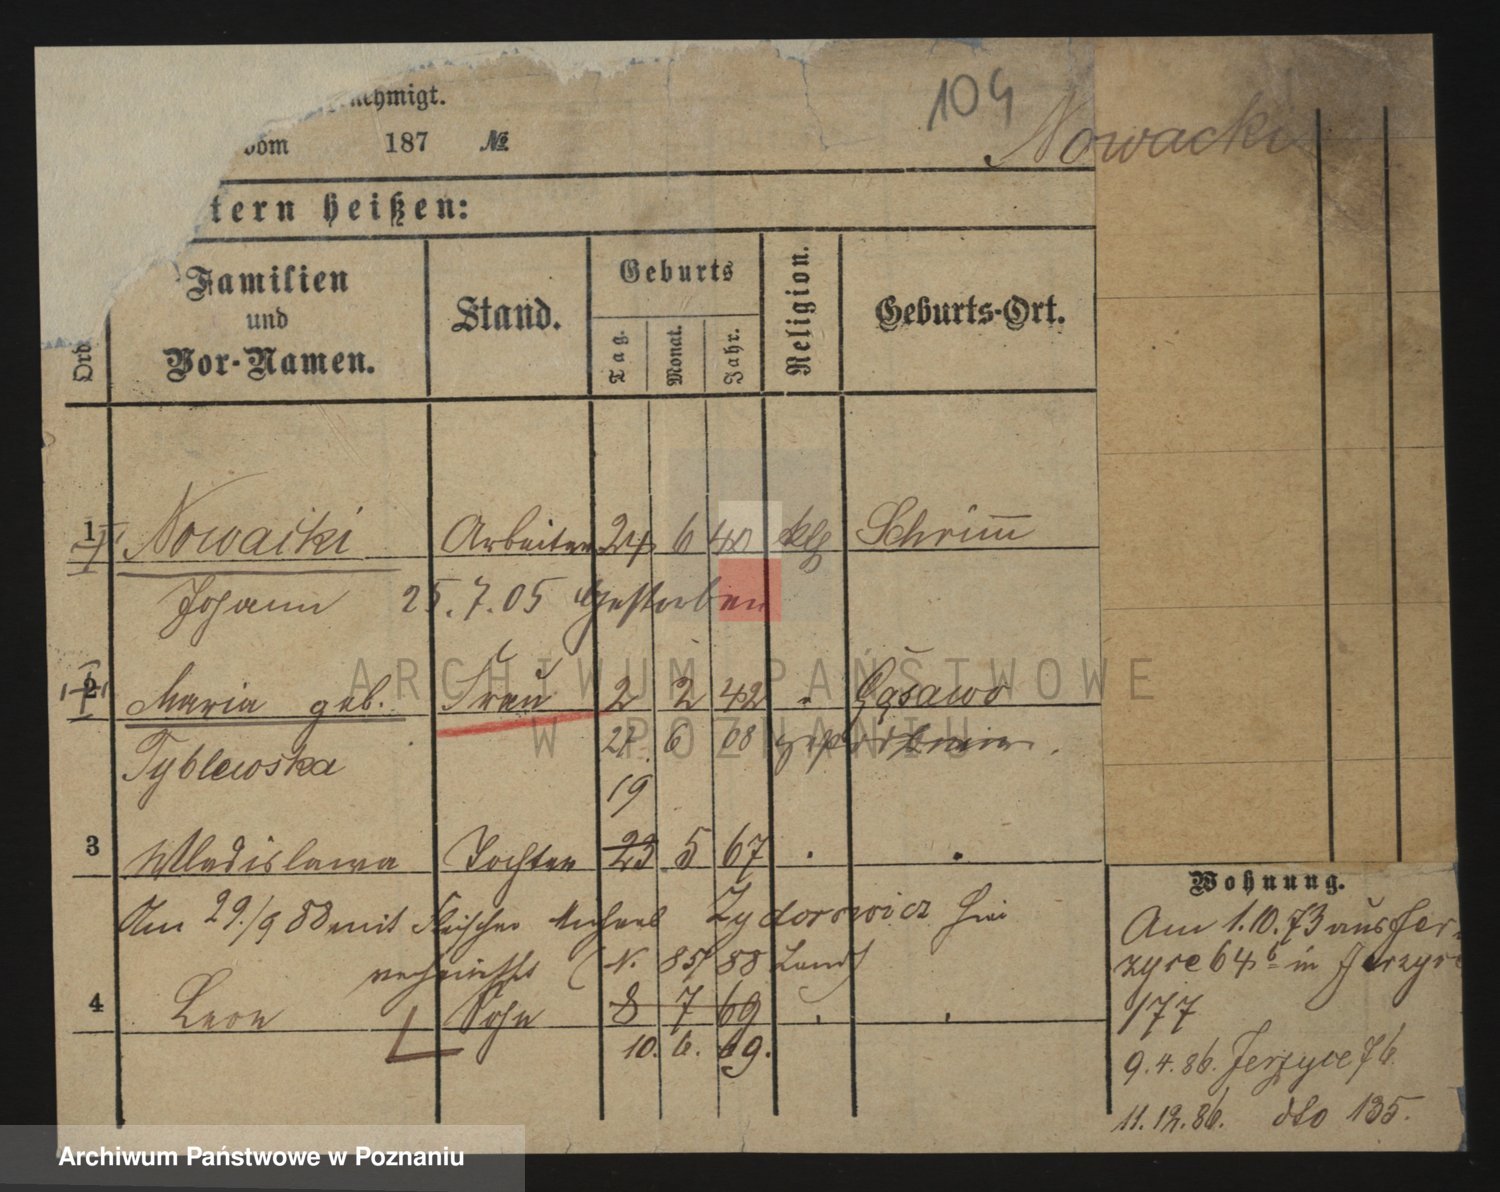 nehmigt.
104
Nowacki
vom 187 №
tern heißen:
Ord
Familien und Vor-Namen.
Stand.
Geburts
Tag. Monat. Jahr.
Religion.
Geburts-Ort.
1 Nowacki Arbeiter 24 6 40 klg Schrimm
Johann 25.7.05 Gestorben
2 Maria geb. Frau 2 2 42 " Gąsawo
Tyblewska 27 6 08 gestorben.
19
3 Wladislawa Tochter 23 5 67 " "
Am 29./9 88 mit Fleischer Michael Zydorowicz hier
verheirathet (N. 85/88 Land)
4 Leon Sohn 8 7 69 " "
10. 6. 69.
Wohnung.
Am 1.10.73 aus Jer
zyce 64b in Jerzyce
177
9.4.86. Jerzyce 76.
11.12.86. dto 135.
ARCHIWUM PAŃSTWOWE
W POZNANIU
Archiwum Państwowe w Poznaniu